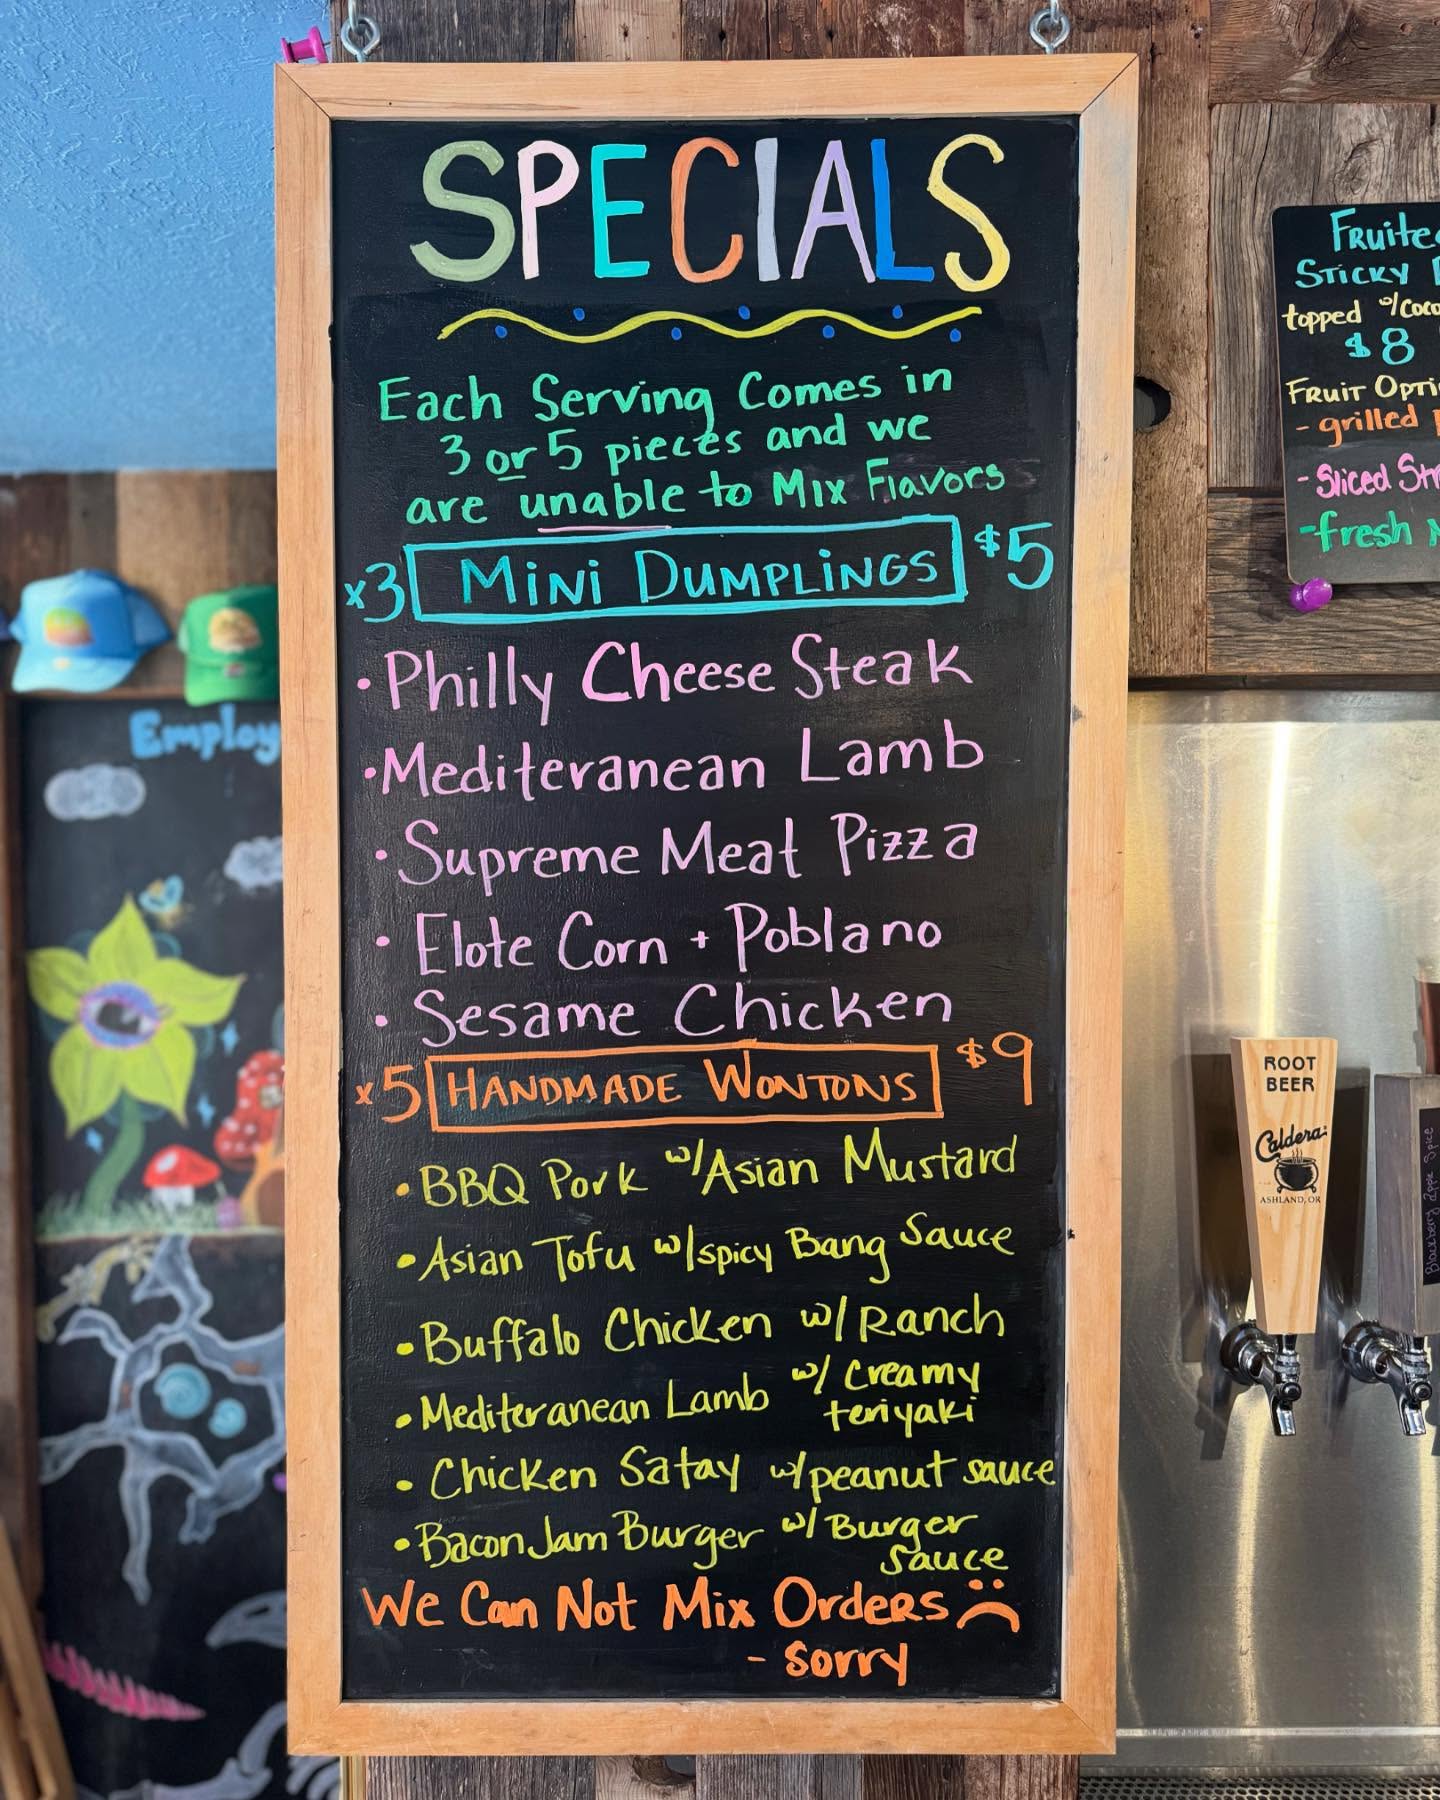 SPECIALS
Each Serving Comes in
3 or 5 pieces and we
are unable to Mix Flavors
x3 MiNi DUMPLiNGS $5
• Philly Cheese Steak
• Mediteranean Lamb
• Supreme Meat Pizza
• Elote Corn + Poblano
• Sesame Chicken
x5 HANDMADE WONTONS $9
• BBQ Pork w/Asian Mustard
• Asian Tofu w/spicy Bang Sauce
• Buffalo Chicken w/ Ranch
• Mediteranean Lamb w/ Creamy
teriyaki
• Chicken Satay w/peanut sauce
• Bacon Jam Burger w/ Burger
Sauce
We Can Not Mix Orders
- Sorry
Employ
Fruite
Sticky
topped w/Coco
$8
Fruit Opti
- grilled
- Sliced Str
- fresh
ROOT
BEER
Caldera
ASHLAND, OR
Blackberry Apple Spice